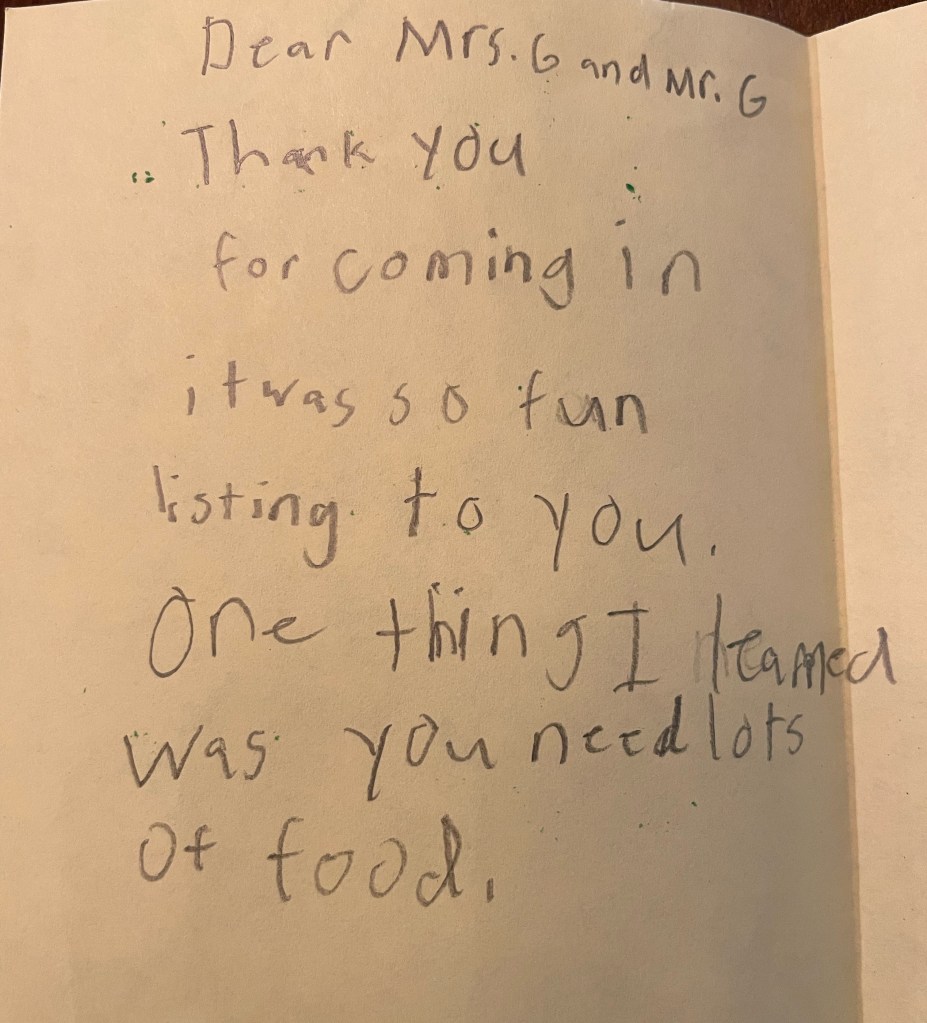 Dear Mrs. G and Mr. G
Thank you
for coming in
it was so fun
listing to you.
One thing I learned
was you need lots
of food.